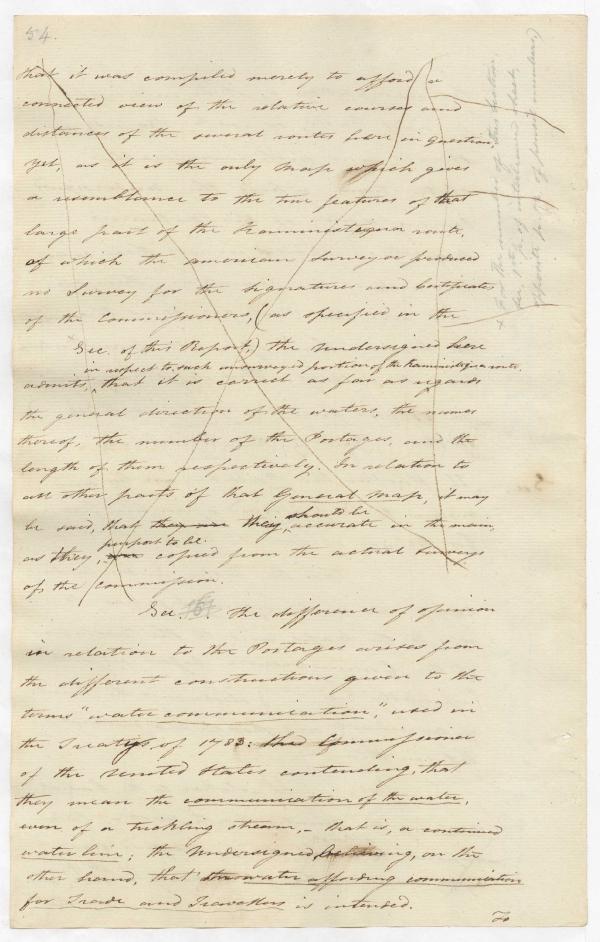 54.
that it was compiled merely to afford a
connected view of the relative courses and
distances of the several routes here in question,
Yet, as it is the only Map which gives
a resemblance to the true features of that
large part of the Kaministiquia route,
of which the american Surveyor produced
no Survey for the Signatures and Certificates
of the Commissioners, (as specified in the
Sec. of this Report,) the Undersigned here
in respect to such unsurveyed portion of the Kaministiquia route,
admits, that it is correct as far as regards
the general direction of the waters, the names
thereof, the number of the Portages, and the
length of them respectively. In relation to
all other parts of that General Map, it may
should be
be said, that they are they, accurate in the main,
purport to be
as they, are copied from the actual Surveys
of the Commission.
Sec. 6. The difference of opinion
in relation to the Portages arises from
the different constructions given to the
terms "water communication", used in
the Treaty of 1783: the Commissioner
of the United States contending, that
they mean the communication of the water,
even of a trickling stream, – that is, a continued
water line; the Undersigned, believing, on the
other hand, that water affording communication
for Trade and Travellers is intended.
To
x For the number of this Section,
see 1st p. of
opposite p. of